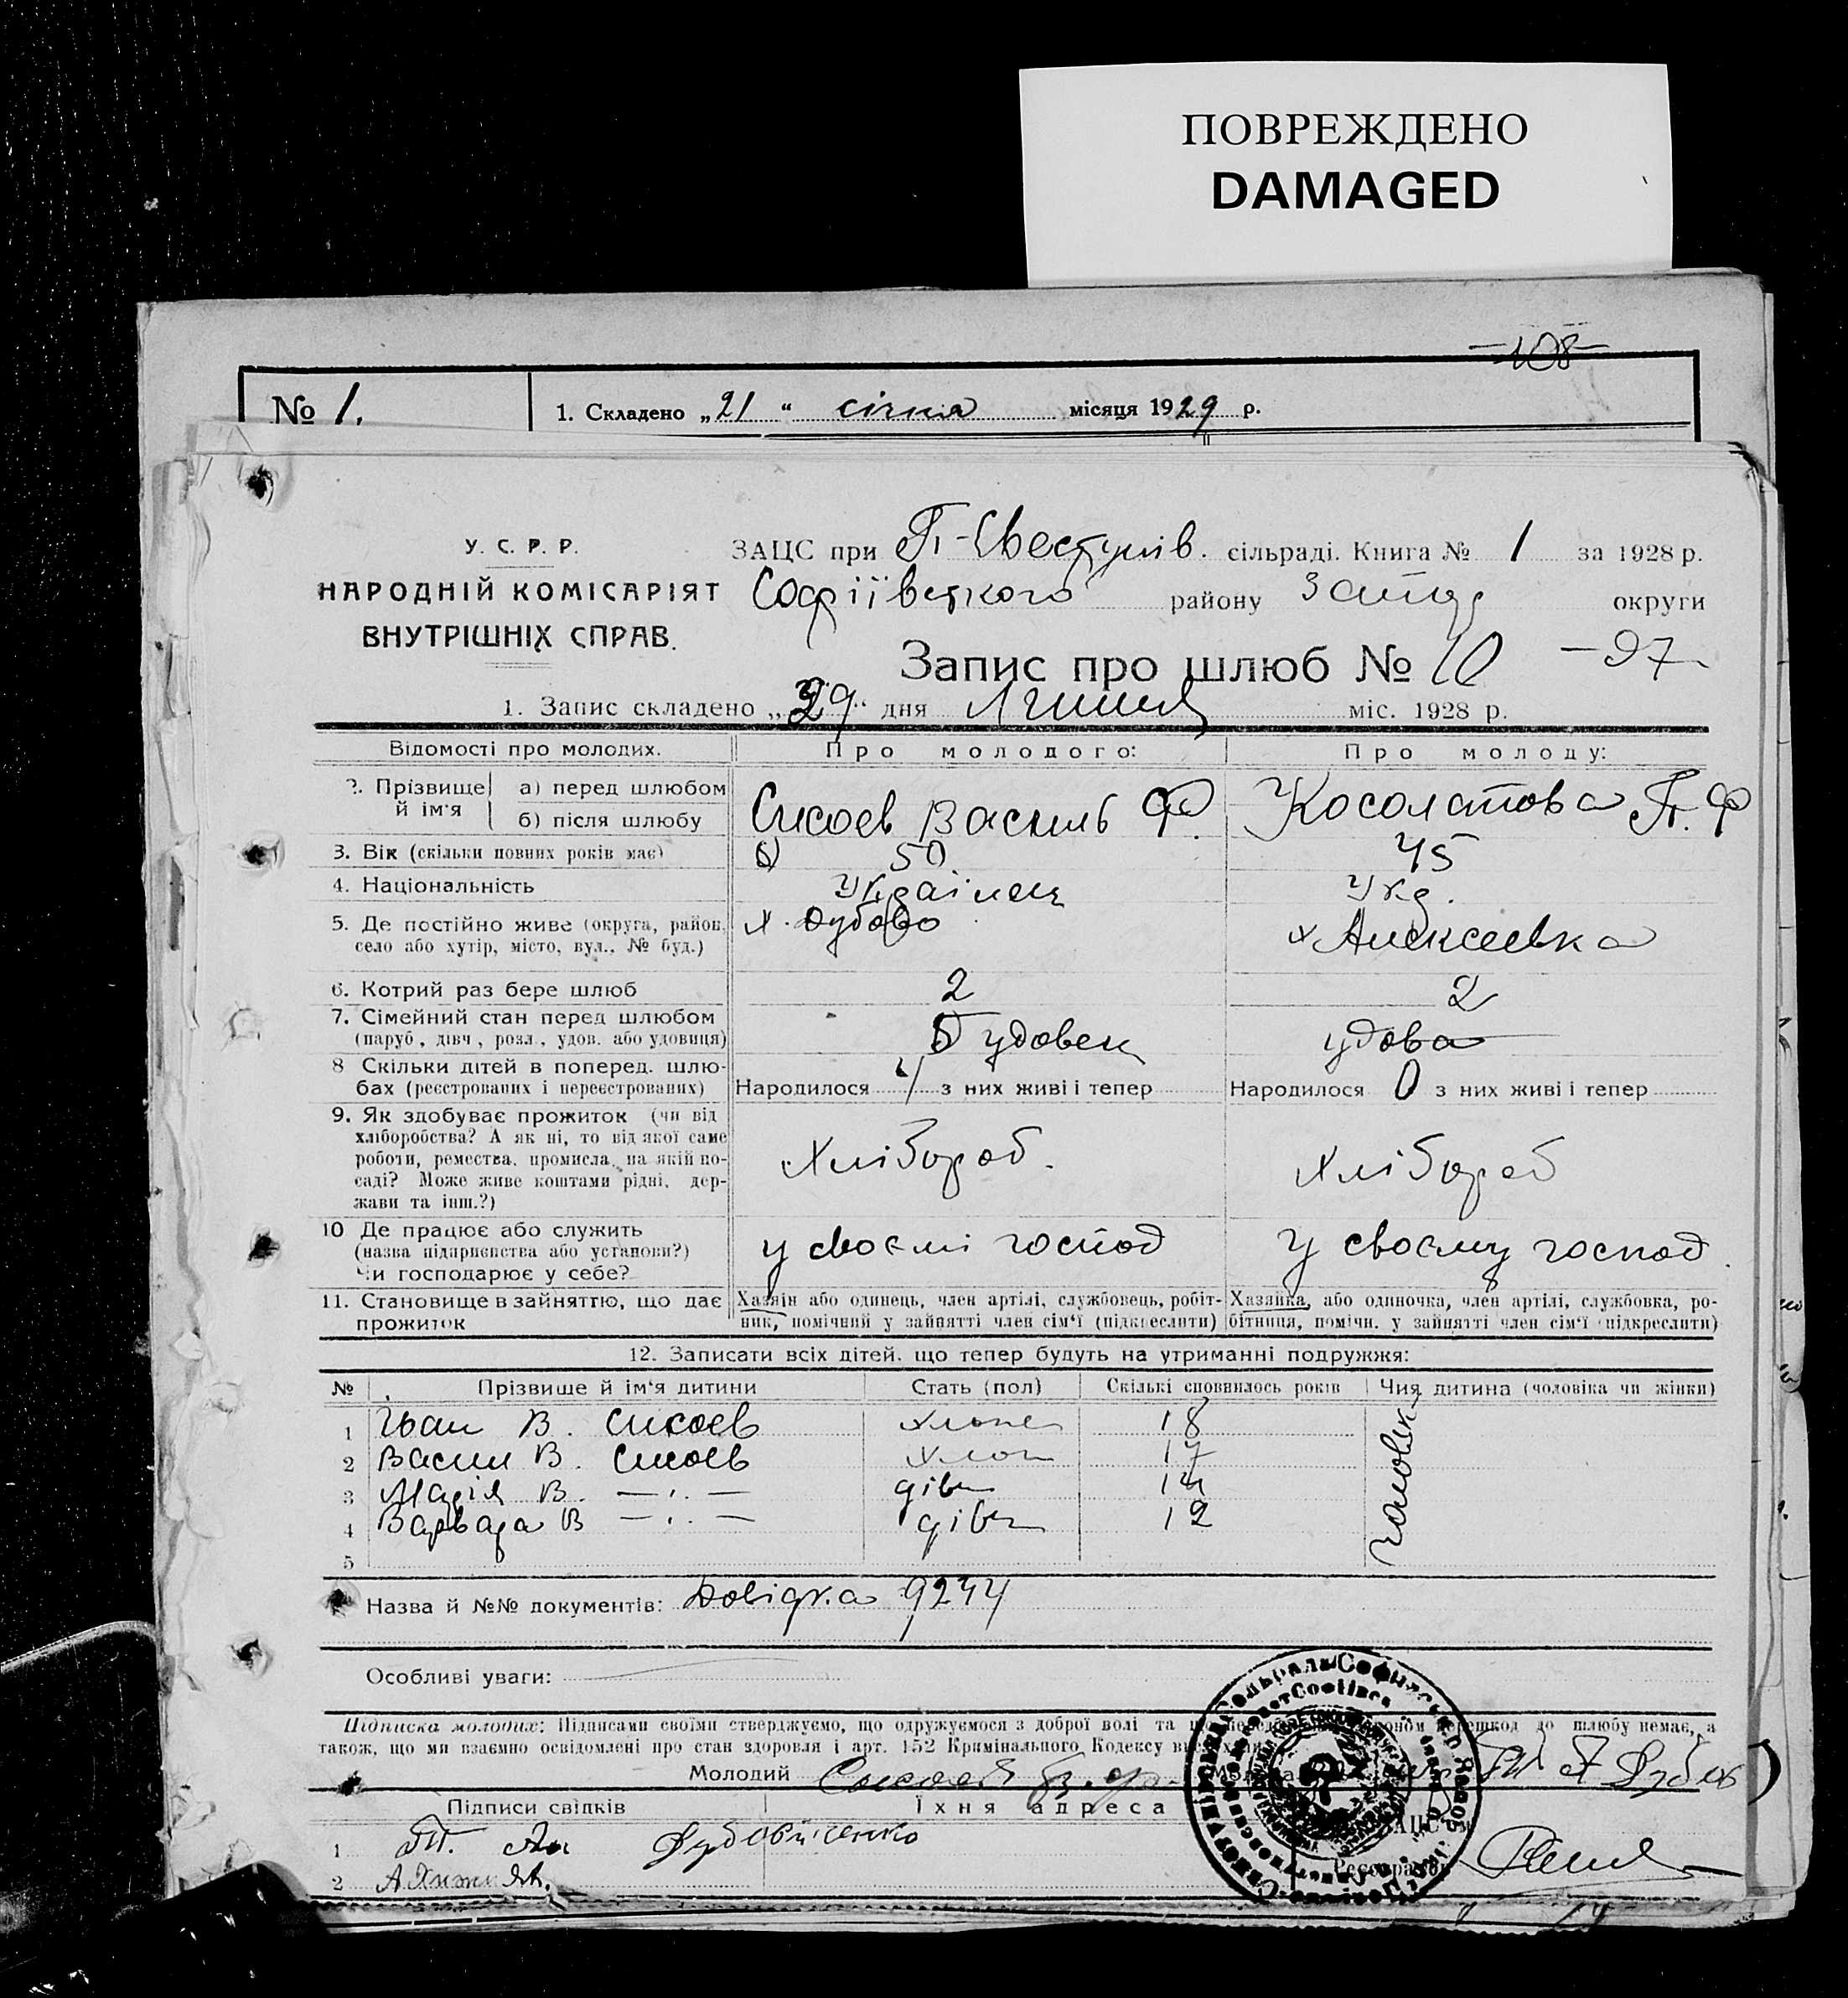 ПОВРЕЖДЕНО
DAMAGED
—108—
№ 1. 1. Складено „21“ січня місяця 1929 р.
У. С. Р. Р.
НАРОДНІЙ КОМІСАРІЯТ
ВНУТРІШНІХ СПРАВ.
ЗАЦС при П-Євестунів. сільраді. Книга № 1 за 1928 р.
Софіївського району Запор округи
Запис про шлюб № 10 —97—
1. Запис складено „29“ дня Липня міс. 1928 р.
Відомості про молодих. Про молодого: Про молоду:
2. Прізвище й ім‘я а) перед шлюбом
б) після шлюбу
Сисоев Василь Ф. Косолапова П. Ф
3. Вік (скільки повних років має) 50 45
4. Національність Українец Укр.
5. Де постійно живе (округа, район,
село або хутір, місто, вул., № буд.)
х. Дубово х Алексеевка
6. Котрий раз бере шлюб 2 2
7. Сімейний стан перед шлюбом
(паруб, дівч, розл., удов. або удовиця)
удовец удова
8 Скільки дітей в поперед. шлю-
бах (реєстрованих і нереєстрованих)
Народилося 4 з них живі і тепер Народилося 0 з них живі і тепер
9. Як здобуває прожиток (чи від
хліборобства? А як ні, то від якої саме
роботи, ремества, промисла, на якій по-
саді? Може живе коштами рідні, дер-
жави та інш.?)
Хлібороб. Хлібороб
10 Де працює або служить
(назва підприємства або установи?)
Чи господарює у себе?
у своємі господ у своєму господ.
11. Становище в зайняттю, що дає
прожиток
Хазяін або одинець, член артілі, службовець, робіт-
ник, помічний у зайнятті член сім‘ї (підкреслити)
Хазяйка, або одиночка, член артілі, службовка, ро-
бітниця, помічн. у зайнятті член сім‘ї (підкреслити)
12. Записати всіх дітей, що тепер будуть на утриманні подружжя:
№ Прізвище й ім‘я дитини Стать (пол) Скількі сповнилось років Чия дитина (чоловіка чи жінки)
1 Іван В. Сисоев хлопе 18
2 Васил В. Сисоев хлоп 17
3 Марія В. — . — дівч 14
4 Варвара В — . — дівч 12
чоловік
5
Назва й №№ документів: Довідка 9244
Особливі уваги:
Підписка молодих: Підписами своїми стверджуємо, що одружуємося з доброї волі та перешкод до шлюбу немає, а
також, що ми взаємно освідомлені про стан здоровля і арт. 152 Кримінального Кодексу
Молодий Сисоев
Підписи свідків Їхня адреса
1
2 А. Хижняк.